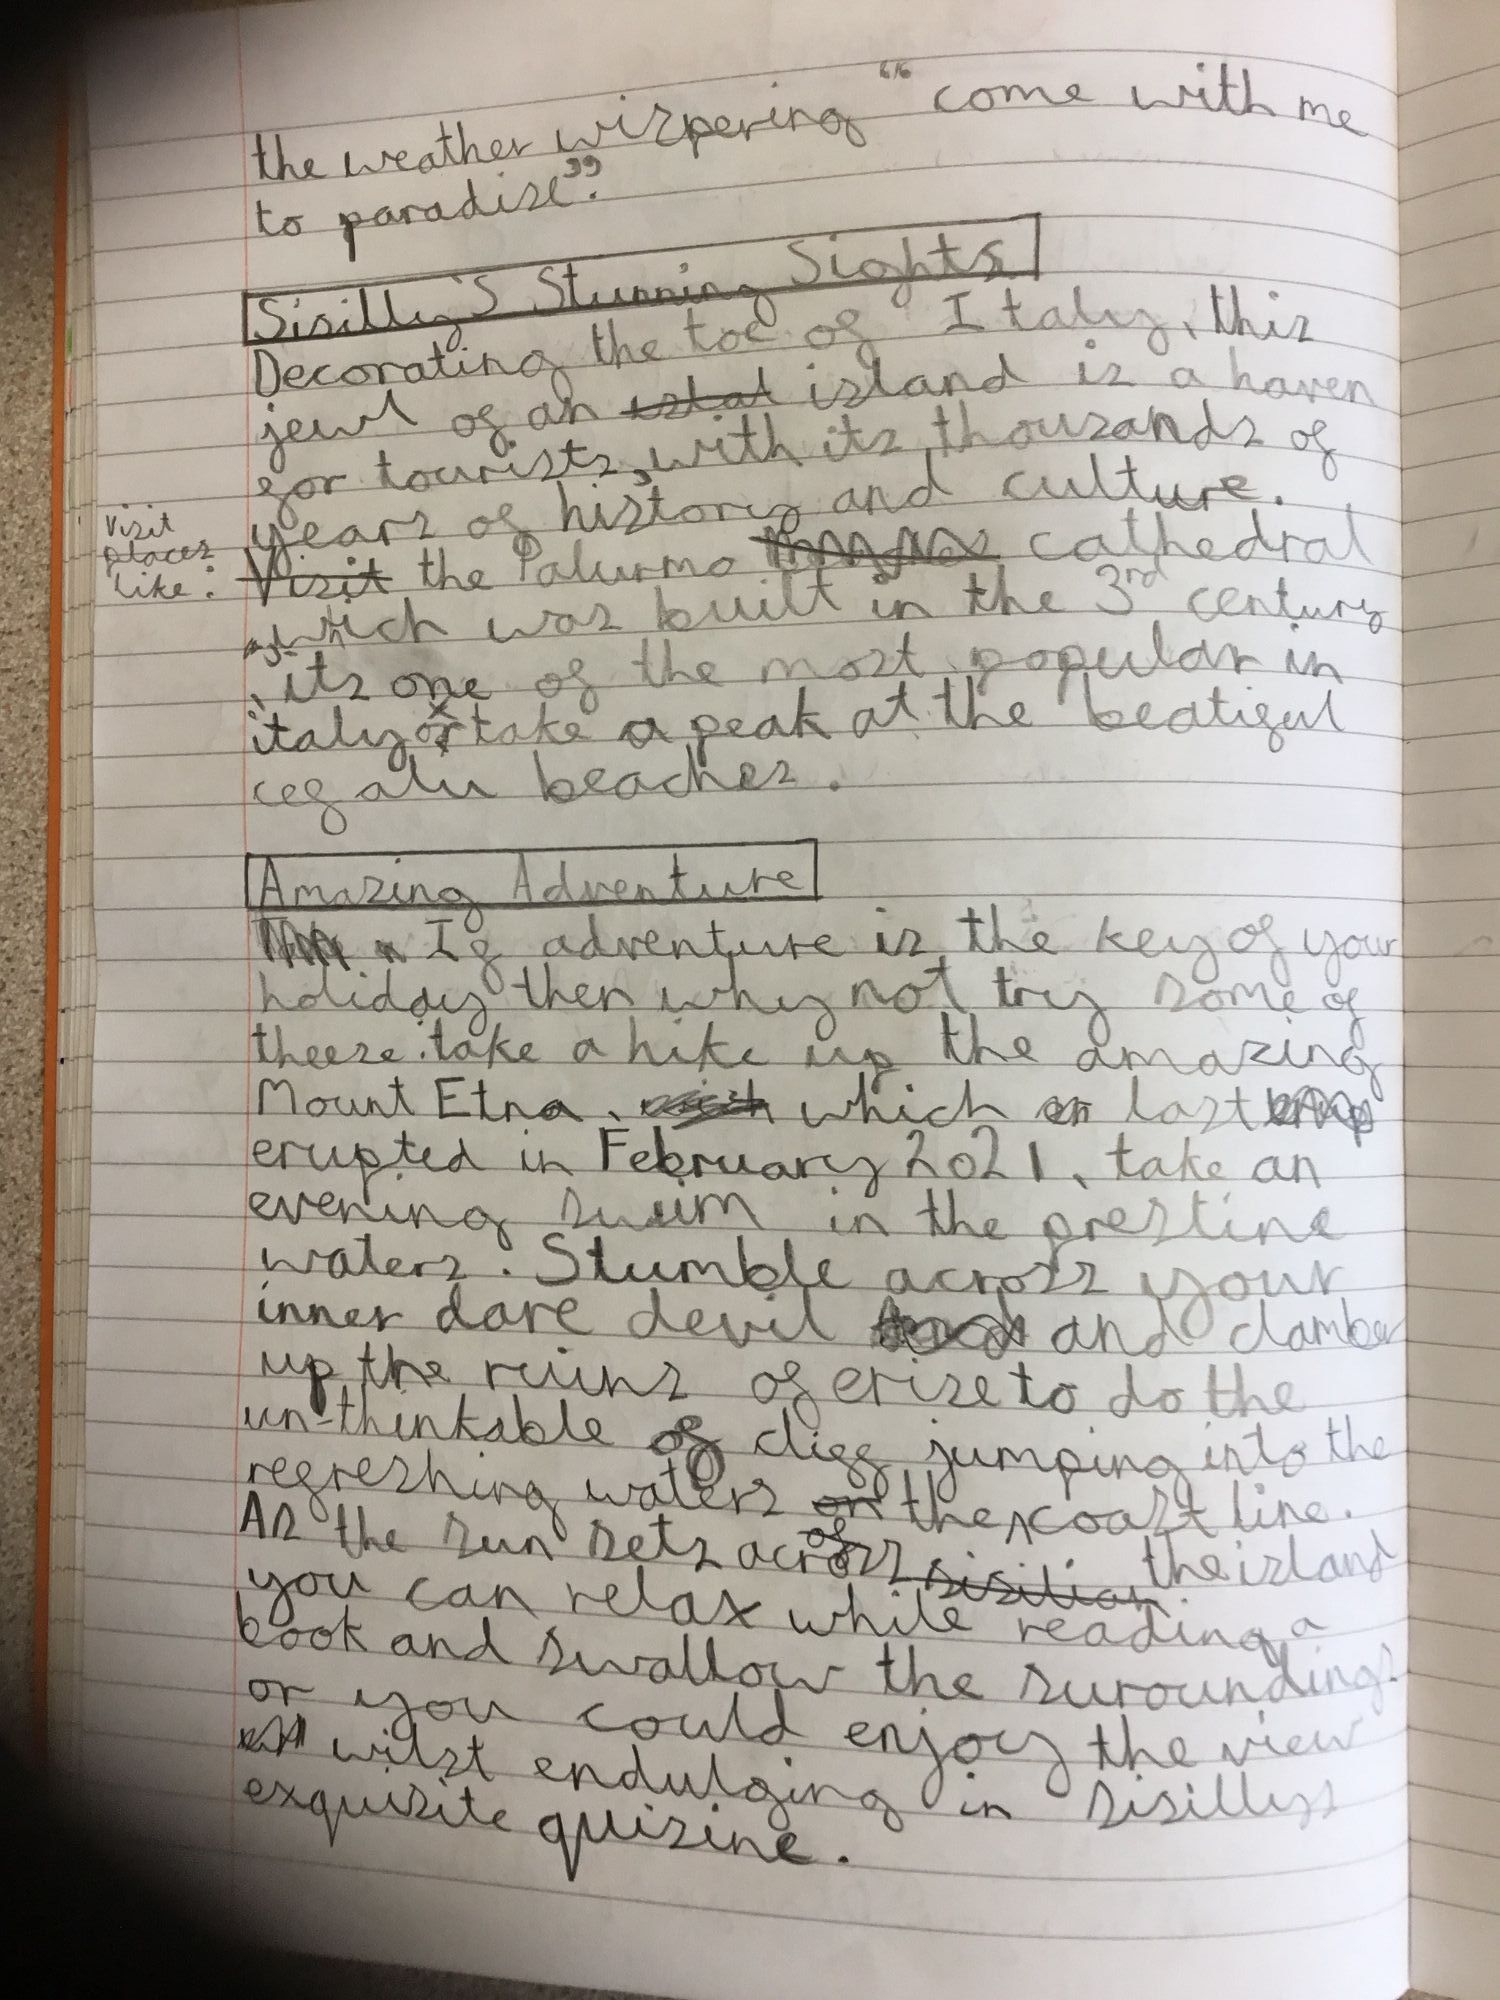 the weather wizpering "come with me
to paradise".
Sisilly's Stunning Sights
Decorating the toe of Italy, this
jewl of an island is a haven
for tourists, with its thousands of
years of history and culture.
Visit
places
like:
Visit the Palurmo cathedral
which was built in the 3rd century
, its one of the most popular in
italy take a peak at the beatiful
cefalu beaches.
Amazing Adventure
If adventure is the key of your
holiday then why not try some of
theese. take a hike up the amazing
Mount Etna, which last
erupted in February 2021, take an
evening swim in the prestine
waters. Stumble across your
inner dare devil and clamber
up the ruins of erise to do the
un-thinkable of cliff jumping into the
refreshing waters on the coast line.
of
As the sun sets across sisilian the island
you can relax while reading a
book and swallow the suroundings
or you could enjoy the view
wilst endulging in sisillys
exquisite quisine.